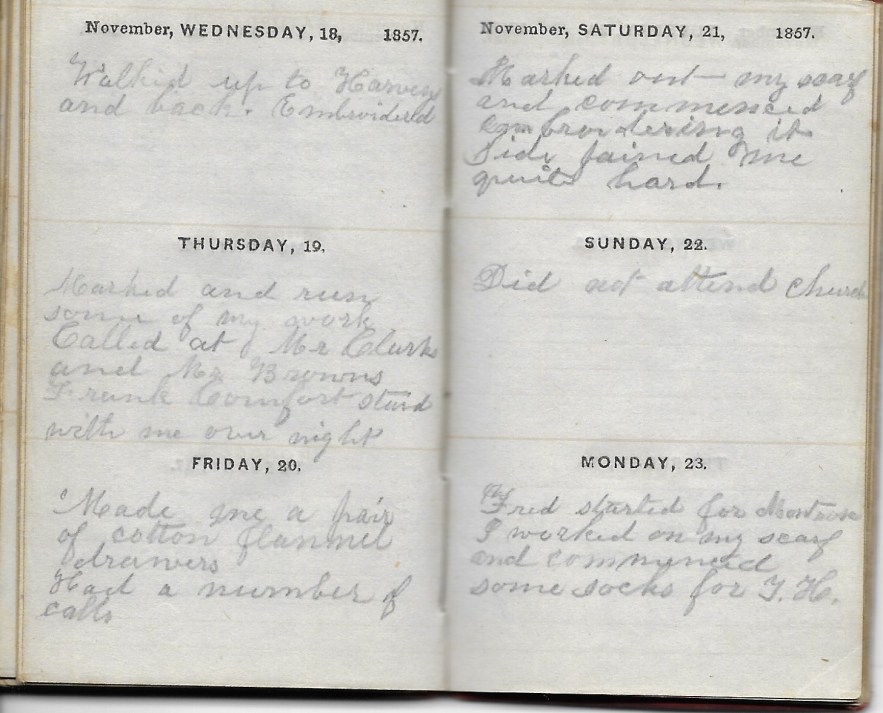 November, WEDNESDAY, 18, 1857.
Walked up to Harveys
and back. Embroiderd
THURSDAY, 19.
Marked and run
some of my work
Called at Mr Clarks
and Mr Browns
Frank Comfort staid
with me over night
FRIDAY, 20.
Made me a pair
of cotton flannel
drawers
Had a number of
calls
November, SATURDAY, 21, 1857.
Marked out my scarf
and commenced
embroidering it
Side pained me
quite hard.
SUNDAY, 22.
Did not attend church
MONDAY, 23.
Fred started for Montrose
I worked on my scarf
and commenced
some socks for T. H.